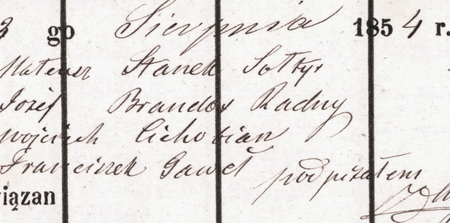 3 go Sierpnia 1854 r.
Mateusz Stanek Sołtys
Józef Brandys Radny
Wojciech Cichocian
Franciszek Gaweł podpisałem
iązan